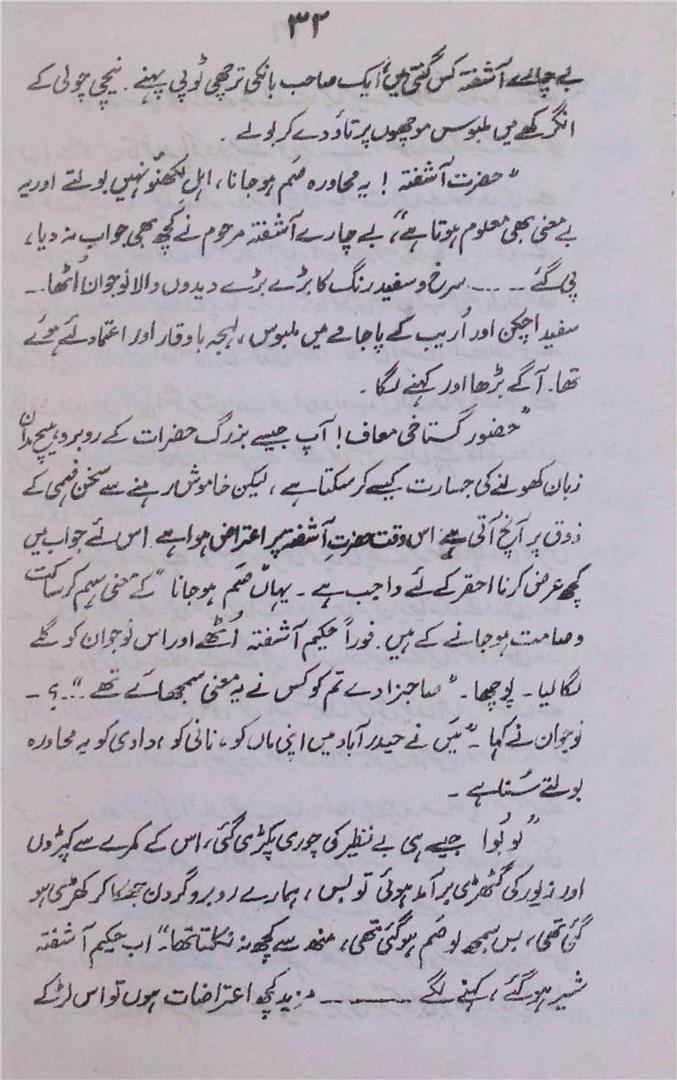 ۳۲
بے چارے آشفتہ کس گنتی میں، ایک صاحب بانکی ترچھی ٹوپی پہنے۔ نیچی چولی کے
انگرکھے میں ملبوس موچھوں پر تاؤ دے کر بولے۔
"حضرت آشفتہ! یہ محاورہ صَم ہو جانا، اہل لکھنؤ نہیں بولتے اور یہ
بے معنی بھی معلوم ہوتا ہے"، بے چارے آشفتہ مرحوم نے کچھ بھی جواب نہ دیا،
پی گئے ۔۔۔۔ سرخ و سفید رنگ کا بڑے بڑے دیدوں والا نوجوان اُٹھا۔
سفید اچکن اور اُریب کے پاجامے میں ملبوس، لہجہ باوقار اور اعتماد لئے ہوئے
تھا۔ آگے بڑھا اور کہنے لگا۔
"حضور گستاخی معاف! آپ جیسے بزرگ حضرات کے روبرو ہیچ مداں
زبان کھولنے کی جسارت کیسے کر سکتا ہے، لیکن خاموش رہنے سے سخن فہمی کے
ذوق پر آنچ آتی ہے اس وقت حضرت آشفتہ پر اعتراض ہوا ہے اس لئے جواب میں
کچھ عرض کرنا احقر کے لئے واجب ہے۔ یہاں "صَم ہو جانا" کے معنی سہم کر ساکت
و صامت ہو جانے کے ہیں۔ فوراً حکیم آشفتہ اُٹھے اور اس نوجوان کو گلے
لگا لیا۔ پوچھا۔ "صاحبزادے تم کو کس نے یہ معنی سمجھائے تھے"۔۔؟۔
نوجوان نے کہا۔ "میں نے حیدرآباد میں اپنی ماں کو، نانی کو، دادی کو یہ محاورہ
بولتے سُنا ہے۔
"لو بُوا جیسے ہی بے نظیر کی چوری پکڑی گئی، اس کے کمرے سے کپڑوں
اور زیور کی گٹھڑی برآمد ہوئی تو بس، ہمارے روبرو گردن جھکا کر کھڑی ہو
گئی تھی، بس سمجھ لو صَم ہو گئی تھی، منھ سے کچھ نہ نکلتا تھا"۔ اب حکیم آشفتہ
شیر ہو گئے، کہنے لگے ۔۔۔۔۔ مزید کچھ اعتراضات ہوں تو اس لڑکے